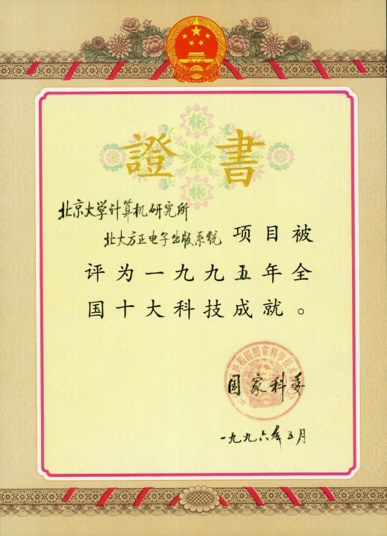 證書
北京大学计算机研究所
北大方正电子出版系统 项目被
评为一九九五年全
国十大科技成就。
国家科委
一九九六年三月